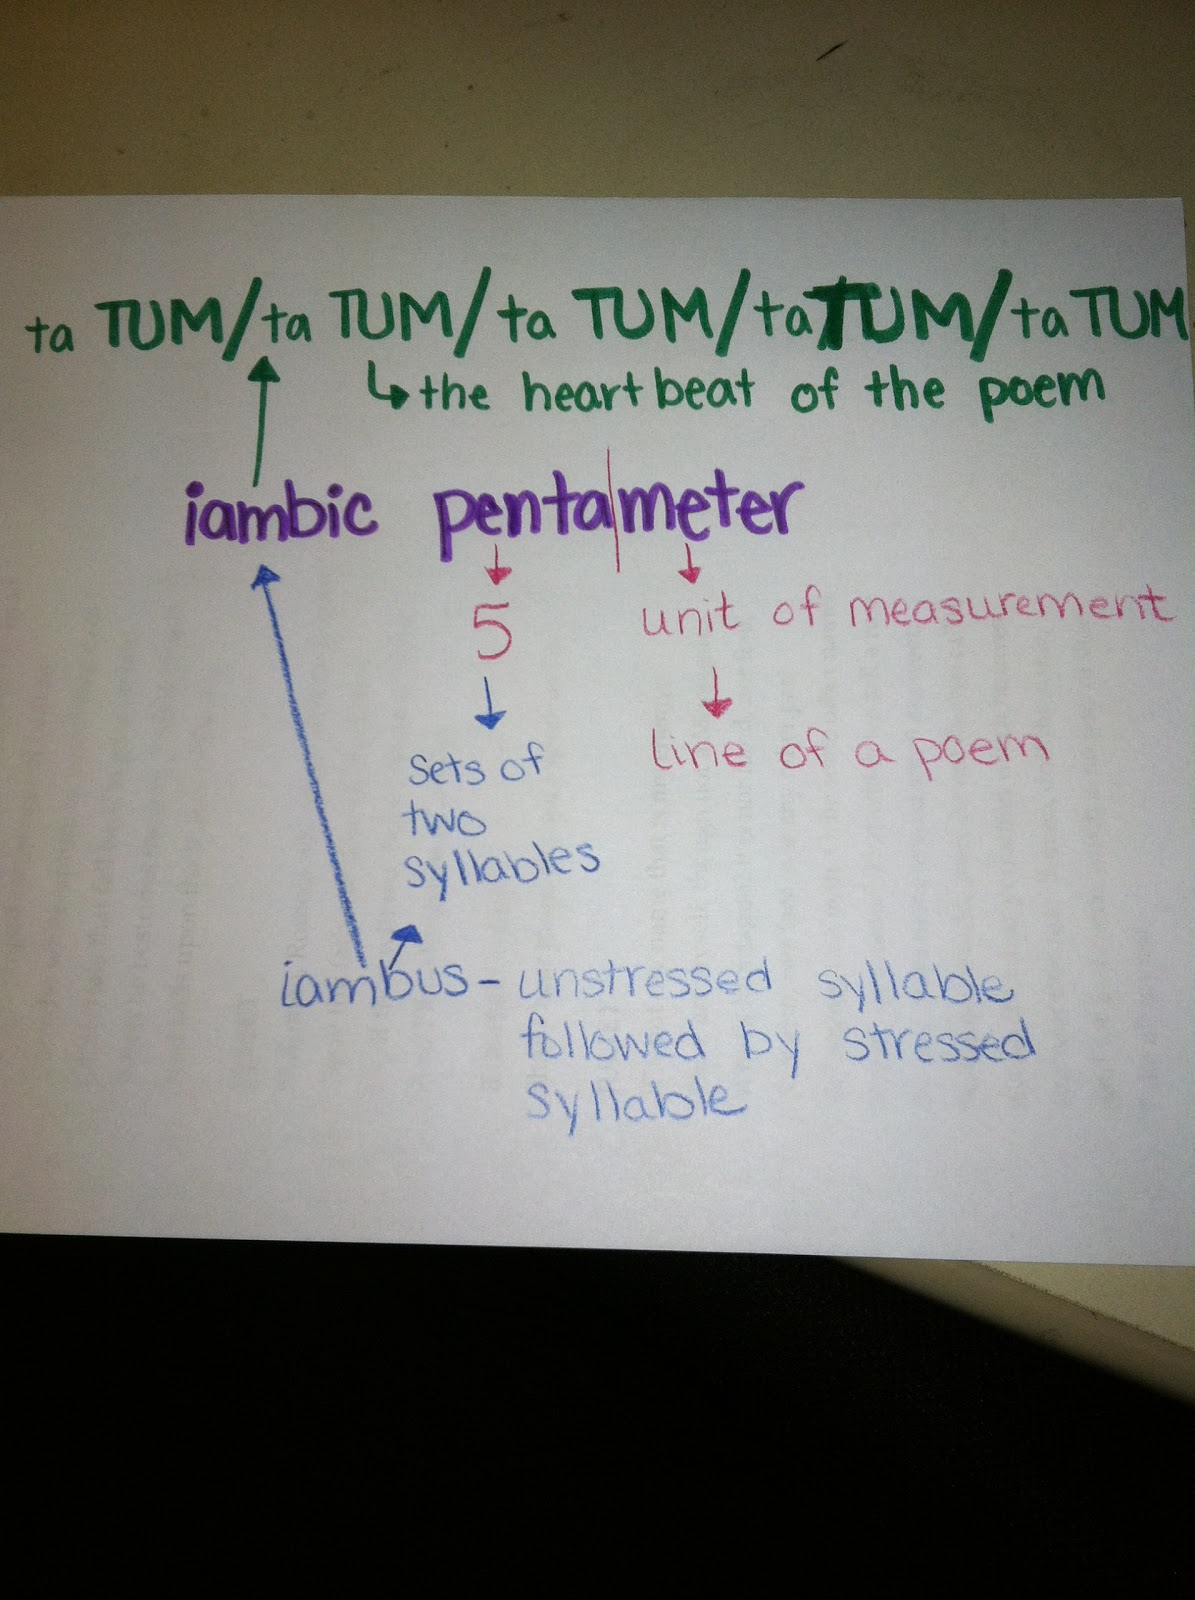 ta TUM/ta TUM/ta TUM/ta TUM/ta TUM
the heartbeat of the poem
iambic penta|meter
5
unit of measurement
sets of
two
syllables
line of a poem
iambus - unstressed syllable
followed by stressed
syllable